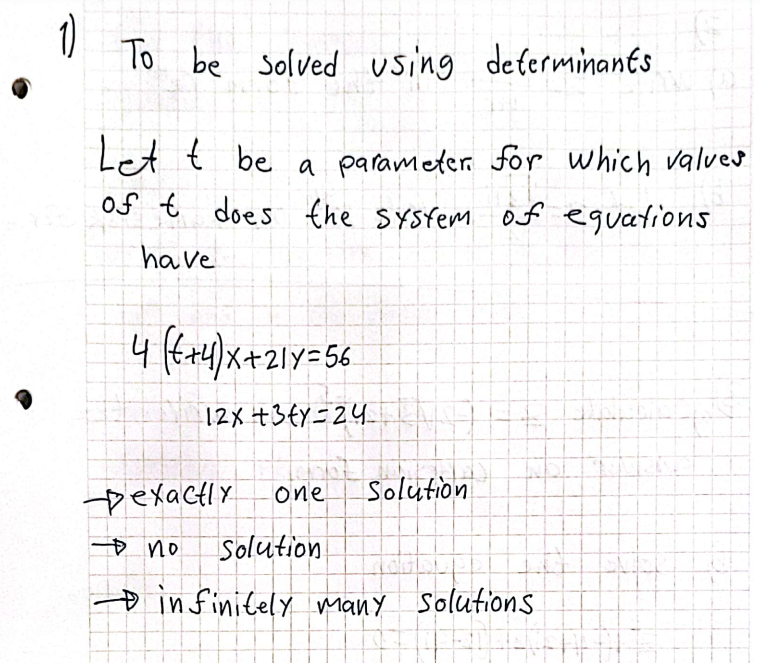 1) To be solved using determinants
Let t be a parameter. for which values
of t does the system of equations
have
4(t+4)x+21y=56
12x+3ty=24
→ exactly one solution
→ no solution
→ infinitely many solutions